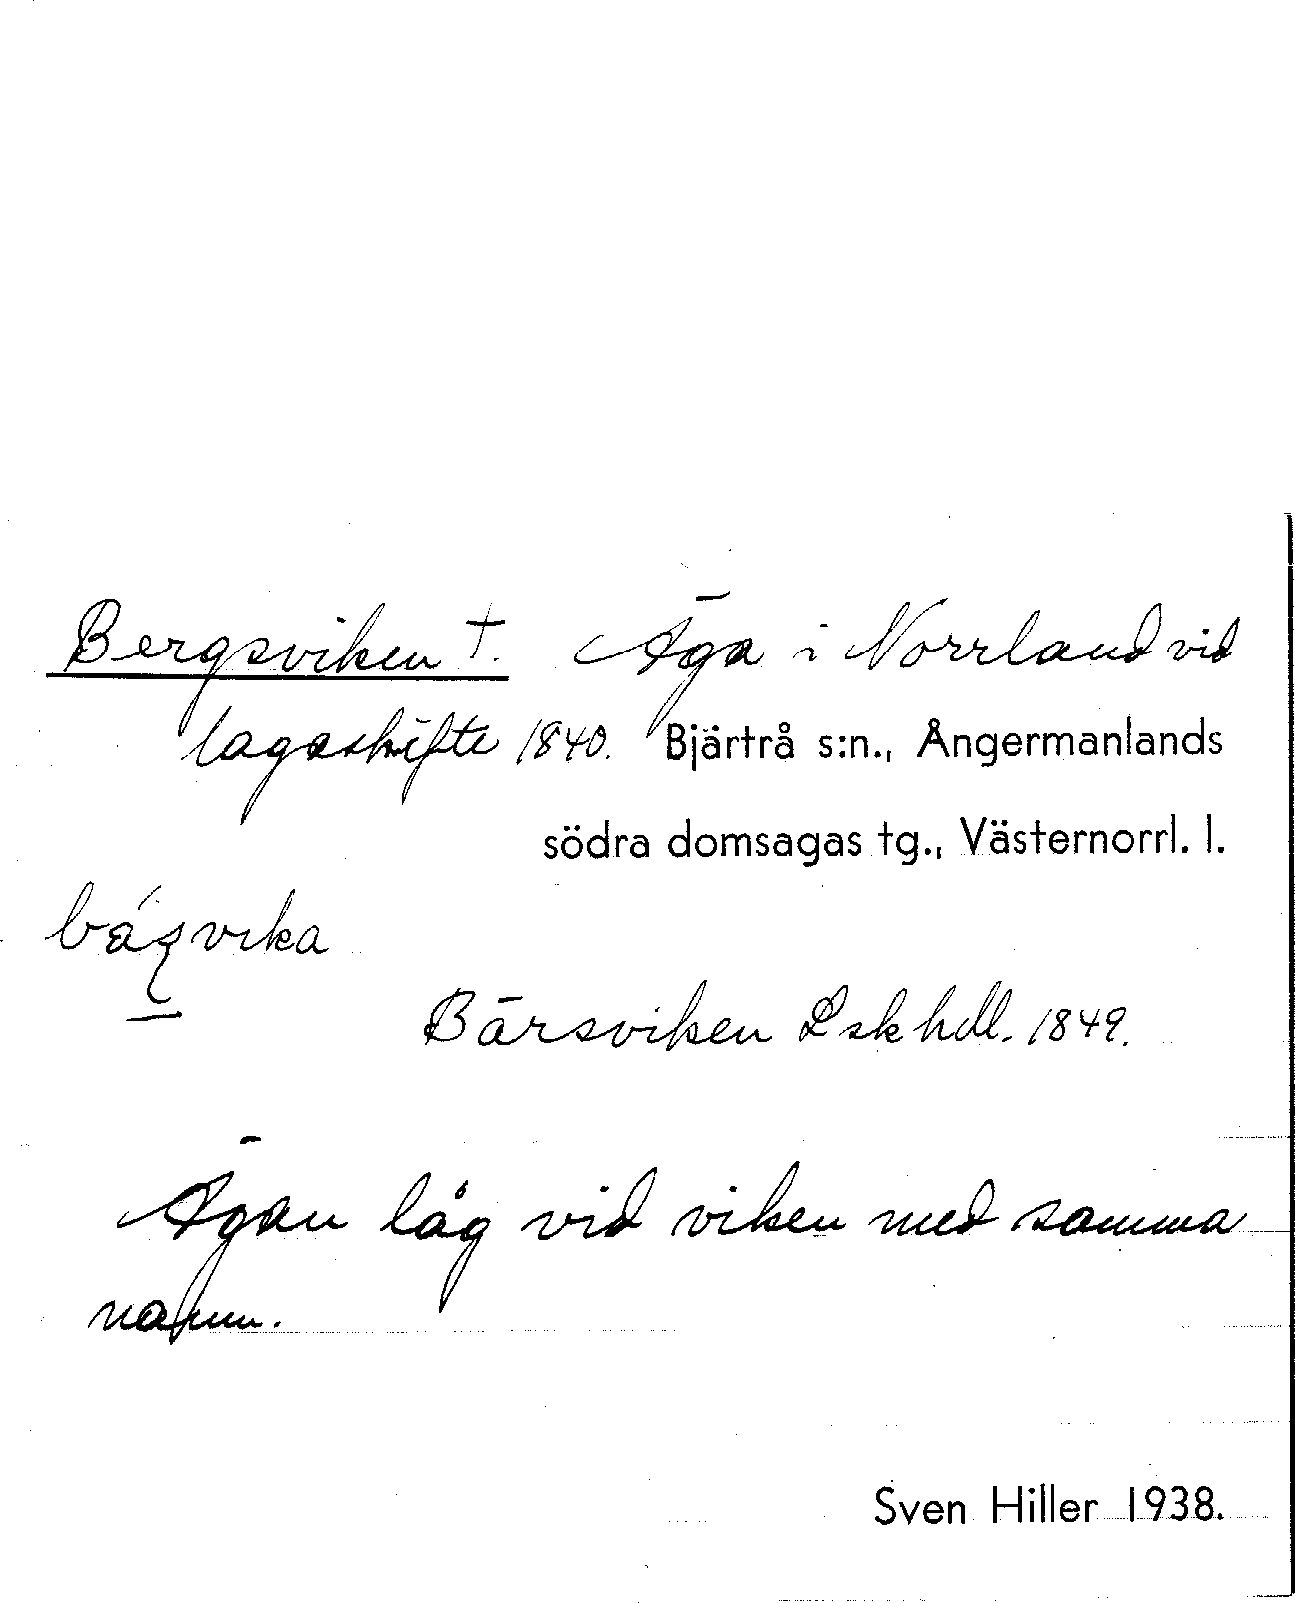 Bergsviken †. Äga i Norrland vid
lagaskifte 1840. Bjärtrå s:n., Ångermanlands
södra domsagas tg., Västernorrl. l.
Bärsviken Lsk hdl. 1849.
Ägan låg vid viken med samma
namn.
Sven Hiller 1938.